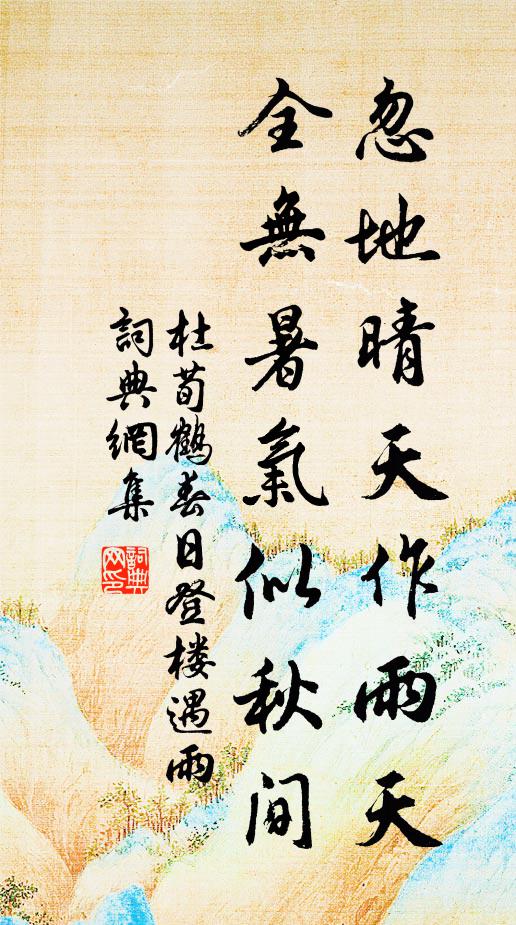 忽地晴天作雨天
全無暑氣似秋间
杜荀鶴春日登楼遇雨
詞典網集
詞典
网印